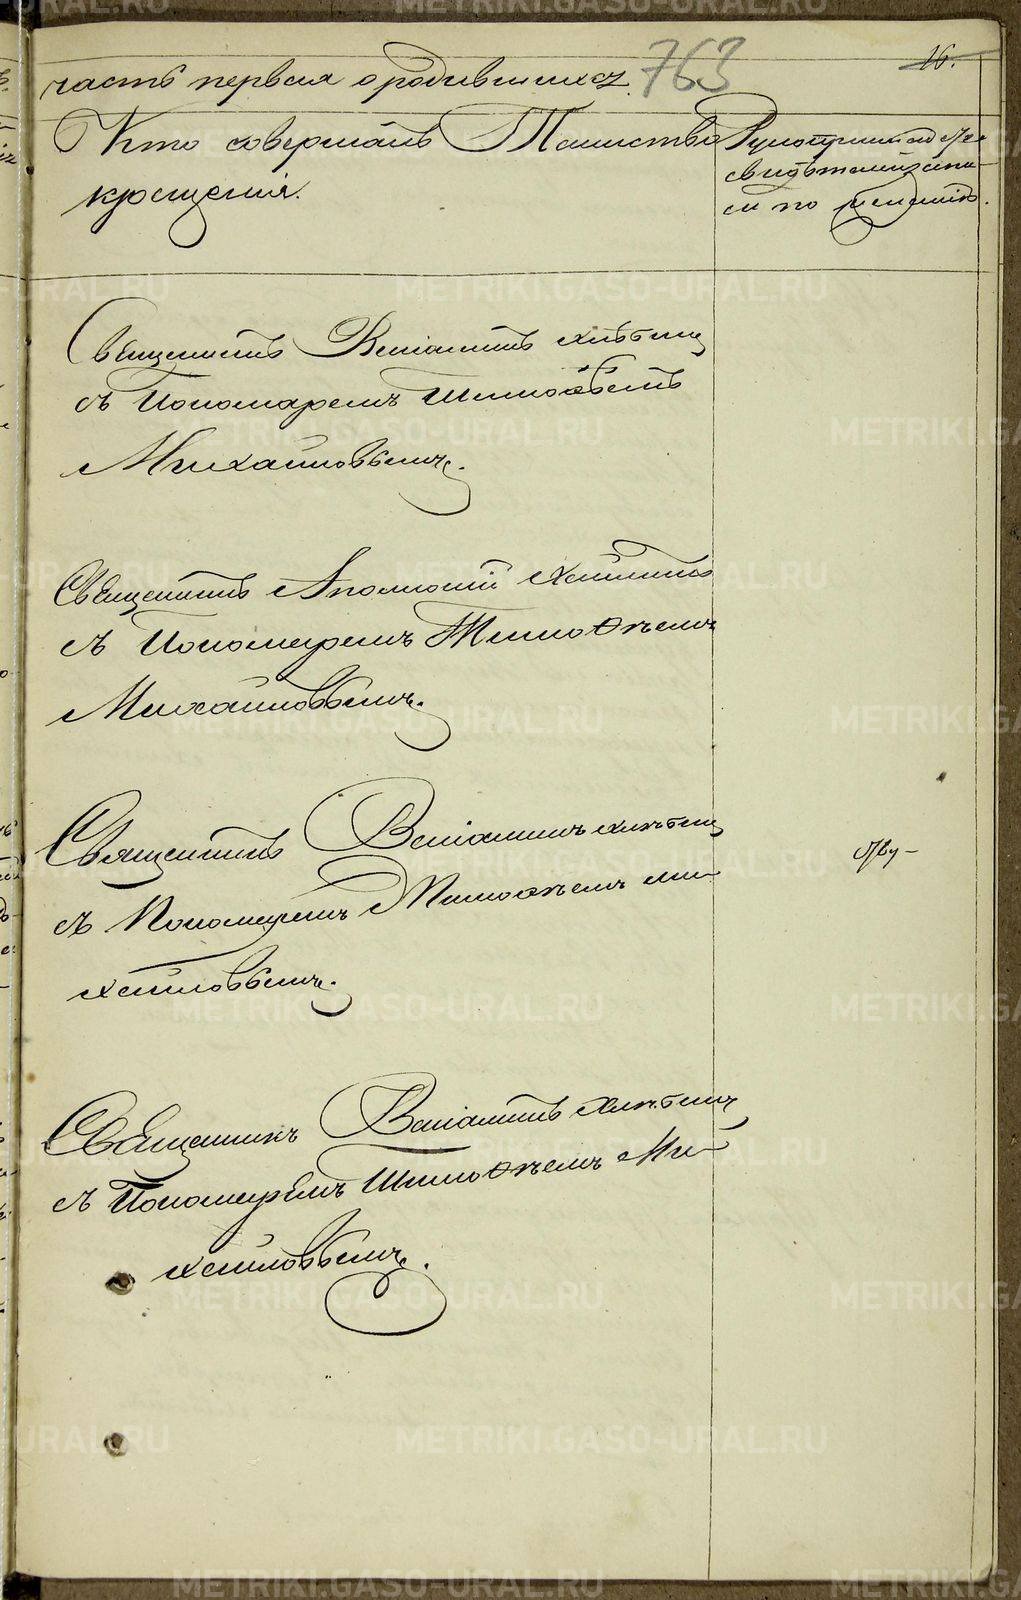 763
16.
часть первая о родившихся.
Кто совершалъ Таинство
крещенія.
Рукоприкладство
свидѣтелей записи
по желанію.
Священникъ Веніаминъ Хлѣбинъ
съ Пономаремъ Тимоѳѣемъ
Михайловымъ.
Священникъ Аполлоній
съ Пономаремъ Тимоѳѣемъ
Михайловымъ.
Священникъ Веніаминъ Хлѣбинъ
съ Пономаремъ Тимоѳѣемъ Ми-
хайловымъ.
Священникъ Веніаминъ Хлѣбинъ
съ Пономаремъ Тимоѳѣемъ Ми-
хайловымъ.
METRIKI.GASO-URAL.RU